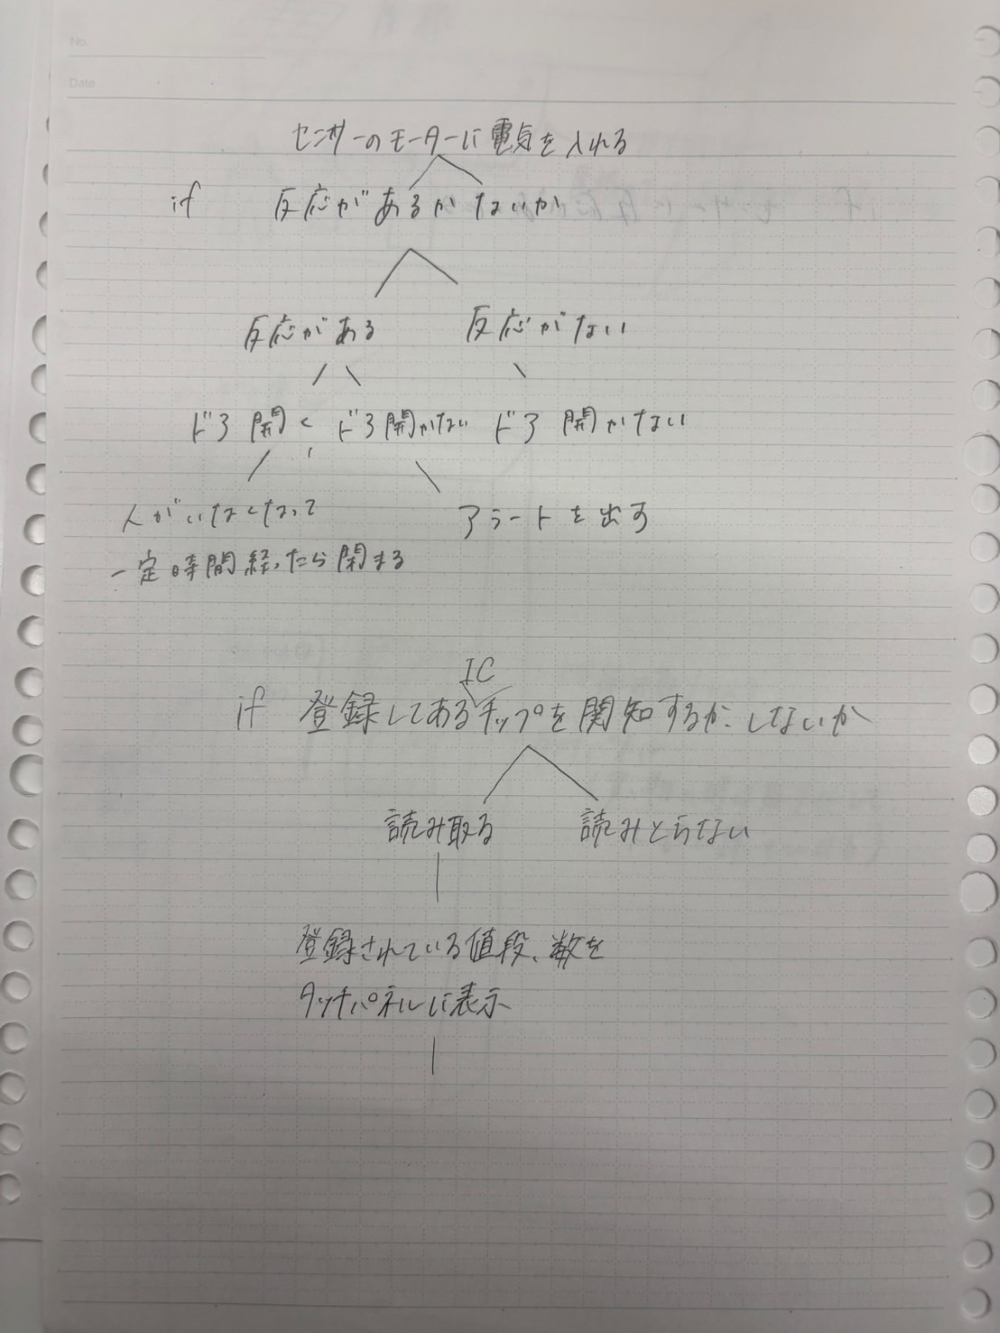 No.
Date
センサーのモーターに電気を入れる
if 反応があるかないか
反応がある 反応がない
ドア開く ドア開かない ドア開かない
人がいなくなって アラートを出す
一定時間経ったら閉まる
IC
if 登録してあるチップを関知するか、しないか
読み取る 読みとらない
登録されている値段、数を
タッチパネルに表示